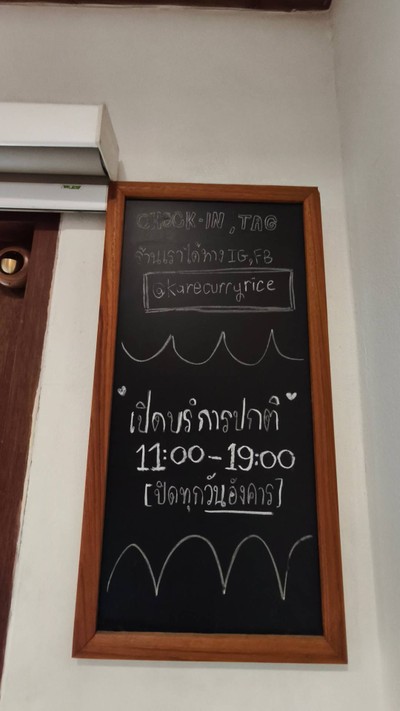 CHECK-IN, TAG
ร้านเราได้ทาง IG,FB
@karecurryrice
เปิดบริการปกติ
11:00-19:00
[ปิดทุกวันอังคาร]